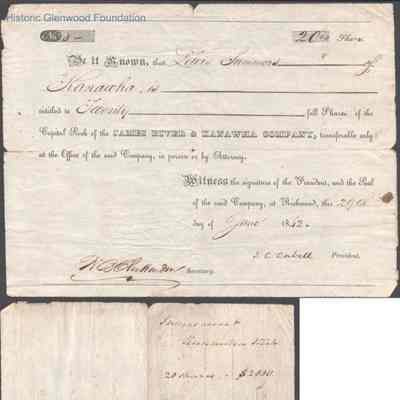 Historic Glenwood Foundation
No.
20 Shares
Be it Known, that Lewis Summers of
Kanawha is
entitled to Twenty full Shares of the
Capital Stock of the JAMES RIVER & KANAWHA COMPANY, transferable only
at the Office of the said Company, in person or by Attorney.
Witness the signature of the President, and the Seal
of the said Company, at Richmond, this 29th
day of June 1842.
J. C. Cabell President.
Secretary.
20 shares - $2000